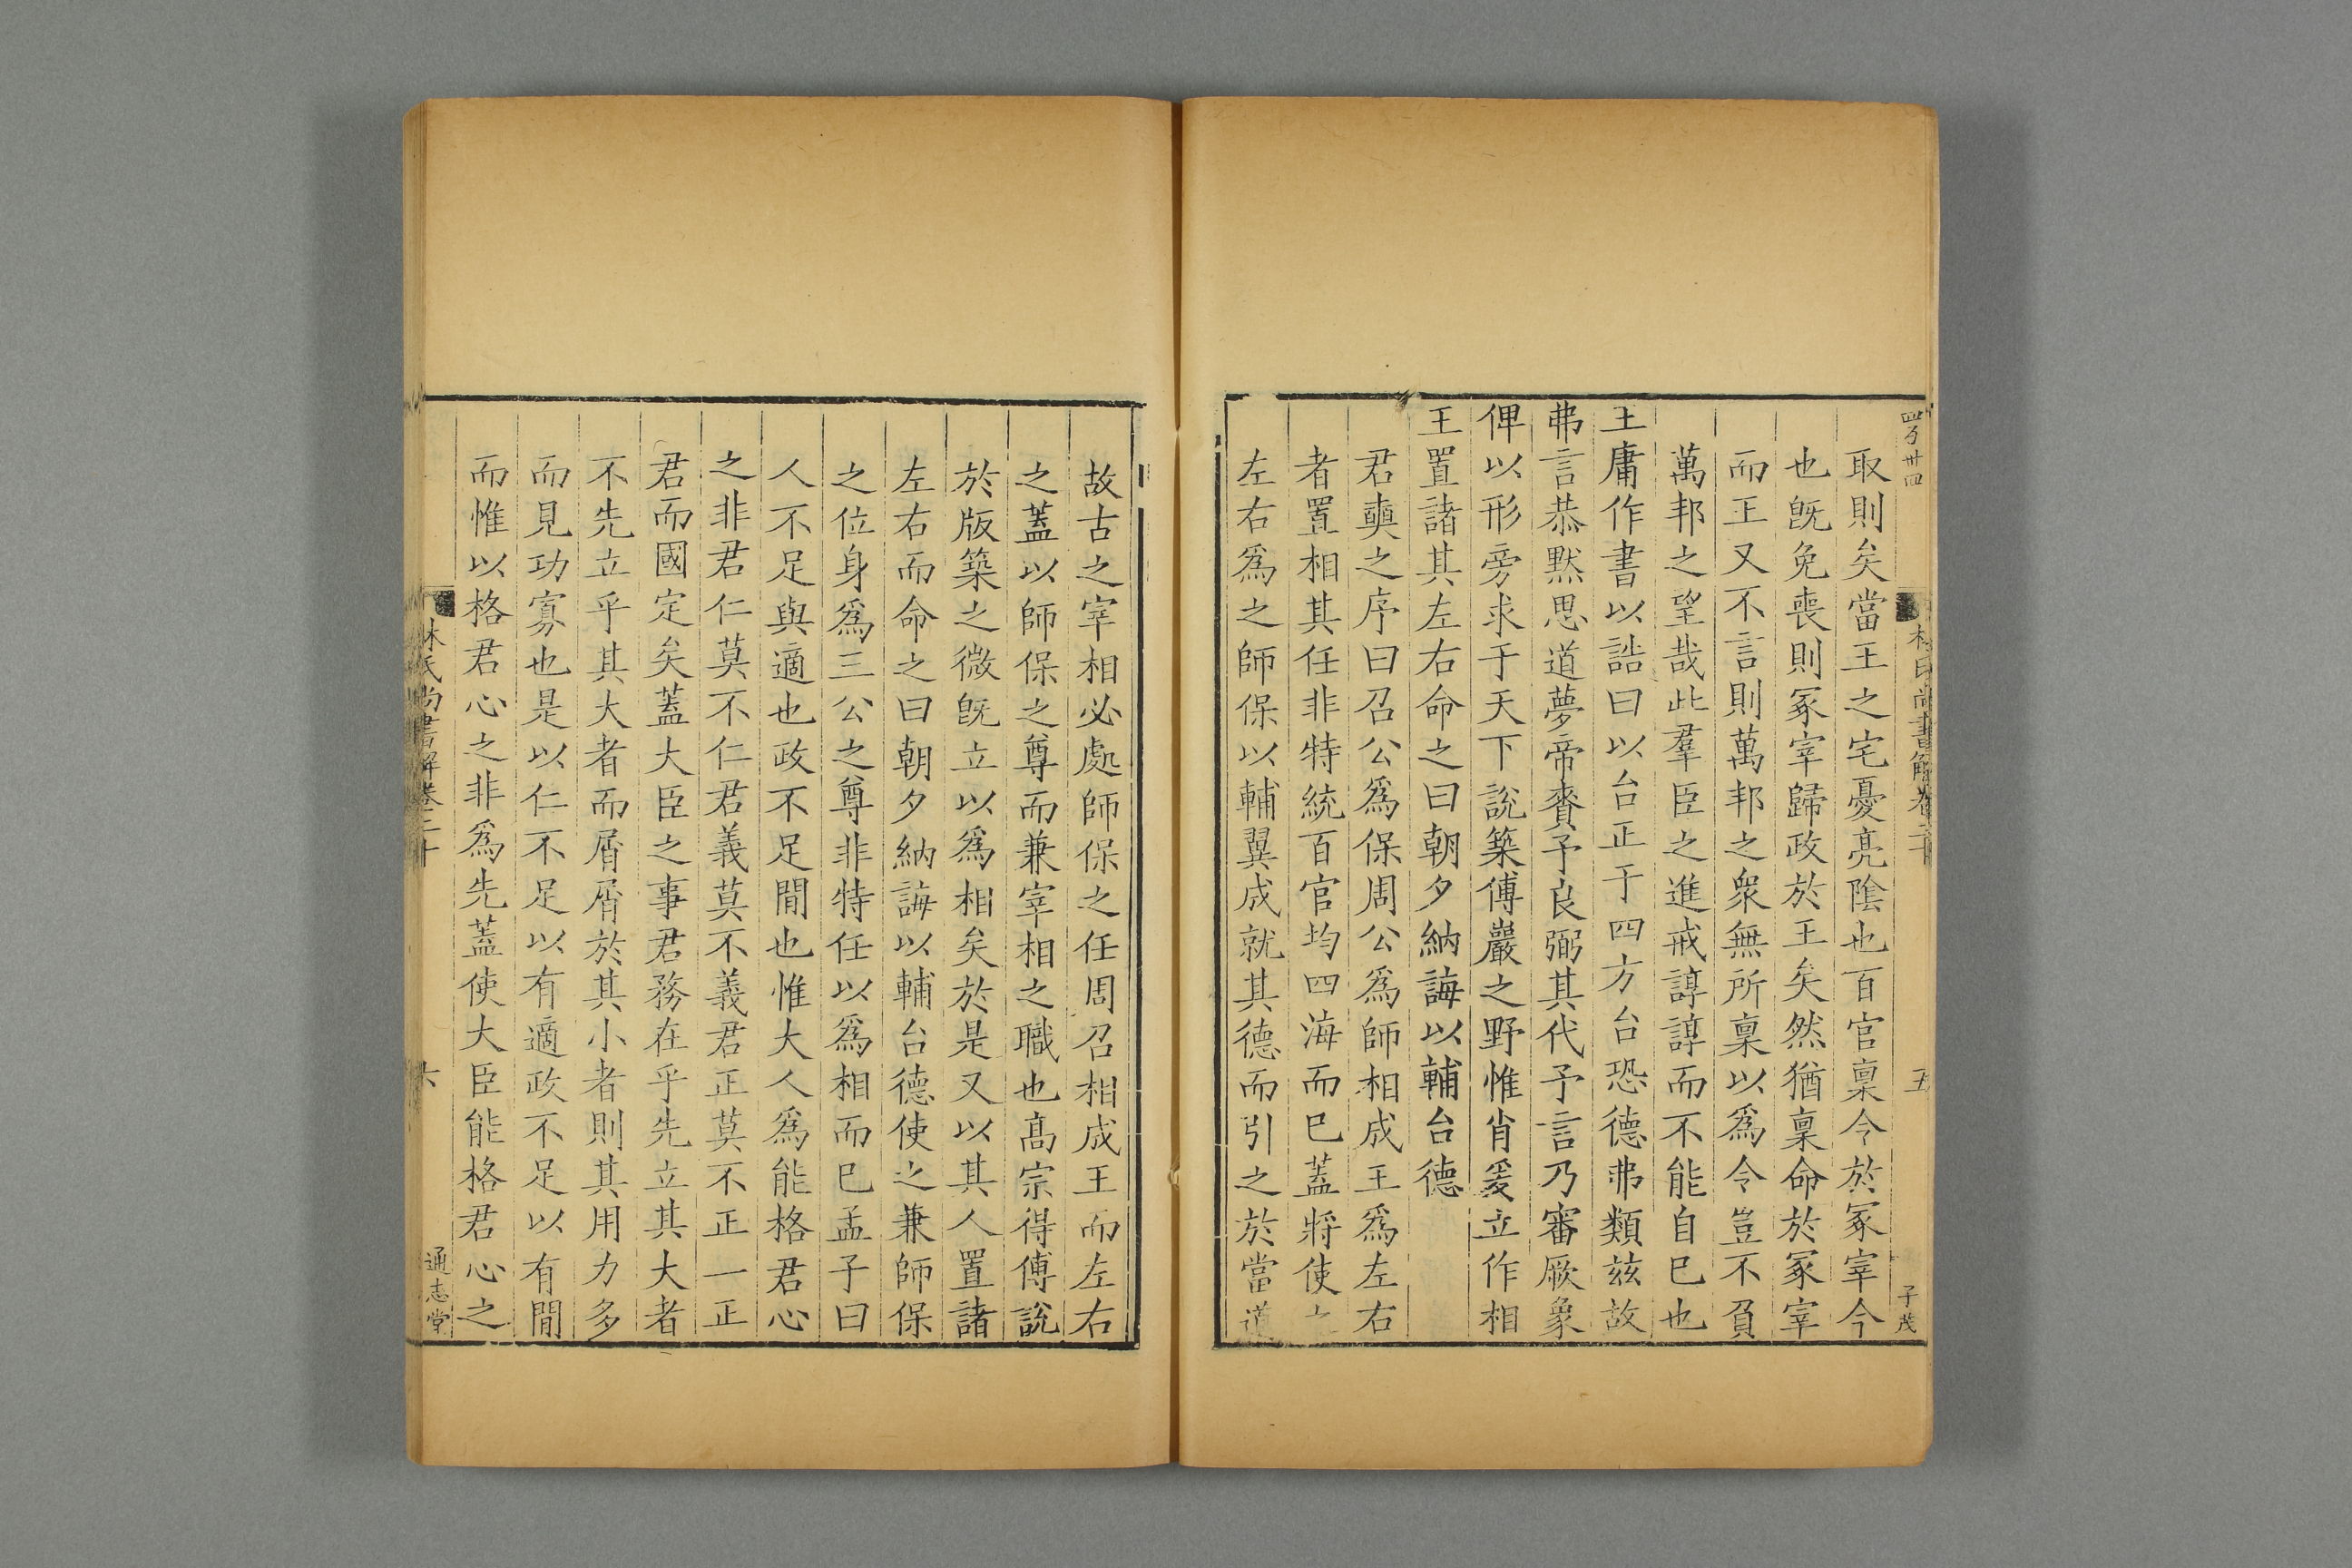 林氏尚書解卷二十
五
子茂
取則矣當王之宅憂亮陰也百官稟令於冢宰今
也旣免喪則冢宰歸政於王矣然猶稟命於冢宰
而王又不言則萬邦之衆無所稟以爲令豈不負
萬邦之望哉此羣臣之進戒諄諄而不能自已也
王庸作書以誥曰以台正于四方台恐德弗類茲故
弗言恭默思道夢帝賚予良弼其代予言乃審厥象
俾以形旁求于天下說築傅巖之野惟肖爰立作相
王置諸其左右命之曰朝夕納誨以輔台德
君奭之序曰召公爲保周公爲師相成王爲左右
者置相其任非特統百官均四海而已蓋將使之
左右爲之師保以輔翼成就其德而引之於當道
故古之宰相必處師保之任周召相成王而左右
之蓋以師保之尊而兼宰相之職也高宗得傅說
於版築之微旣立以爲相矣於是又以其人置諸
左右而命之曰朝夕納誨以輔台德使之兼師保
之位身爲三公之尊非特任以爲相而已孟子曰
人不足與適也政不足間也惟大人爲能格君心
之非君仁莫不仁君義莫不義君正莫不正一正
君而國定矣蓋大臣之事君務在乎先立其大者
不先立乎其大者而屑屑於其小者則其用力多
而見功寡也是以仁不足以有適政不足以有間
而惟以格君心之非爲先蓋使大臣能格君心之
林氏尚書解卷二十
六
通志堂